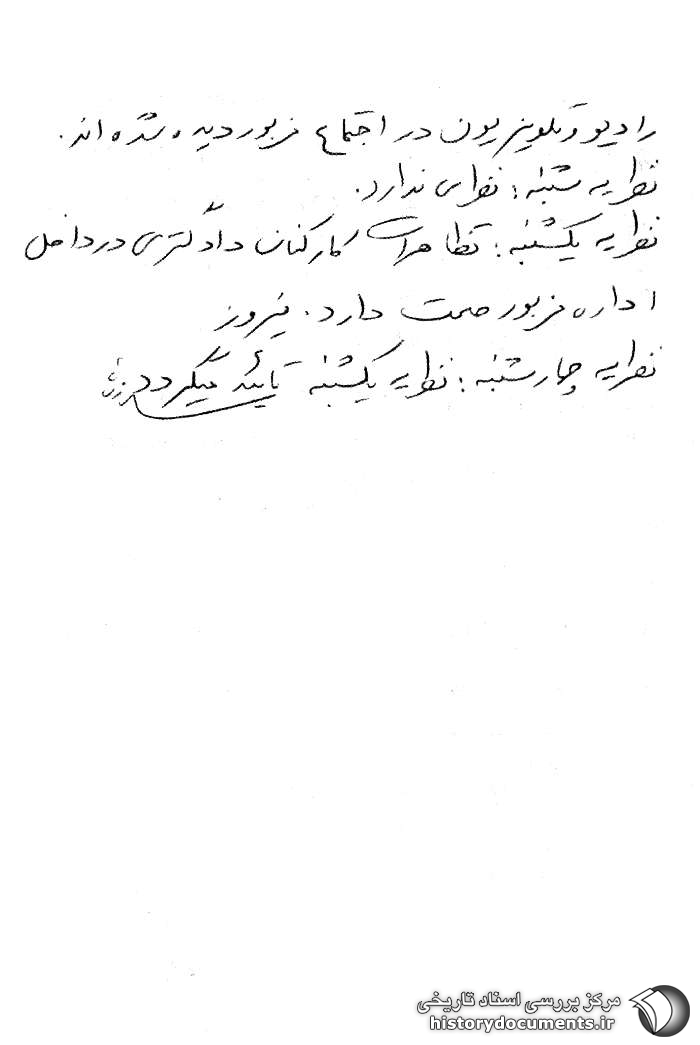 رادیو و تلویزیون در اجتماع مزبور دیده شده اند.
نظریه شنبه: نظرای ندارد.
نظریه یکشنبه: تظاهرات کارکنان دادگستری در داخل
اداره مزبور صحت دارد. فیروز
نظریه چهارشنبه: نظریه یکشنبه تائید میگردد.
مرکز بررسی اسناد تاریخی
historydocuments.ir